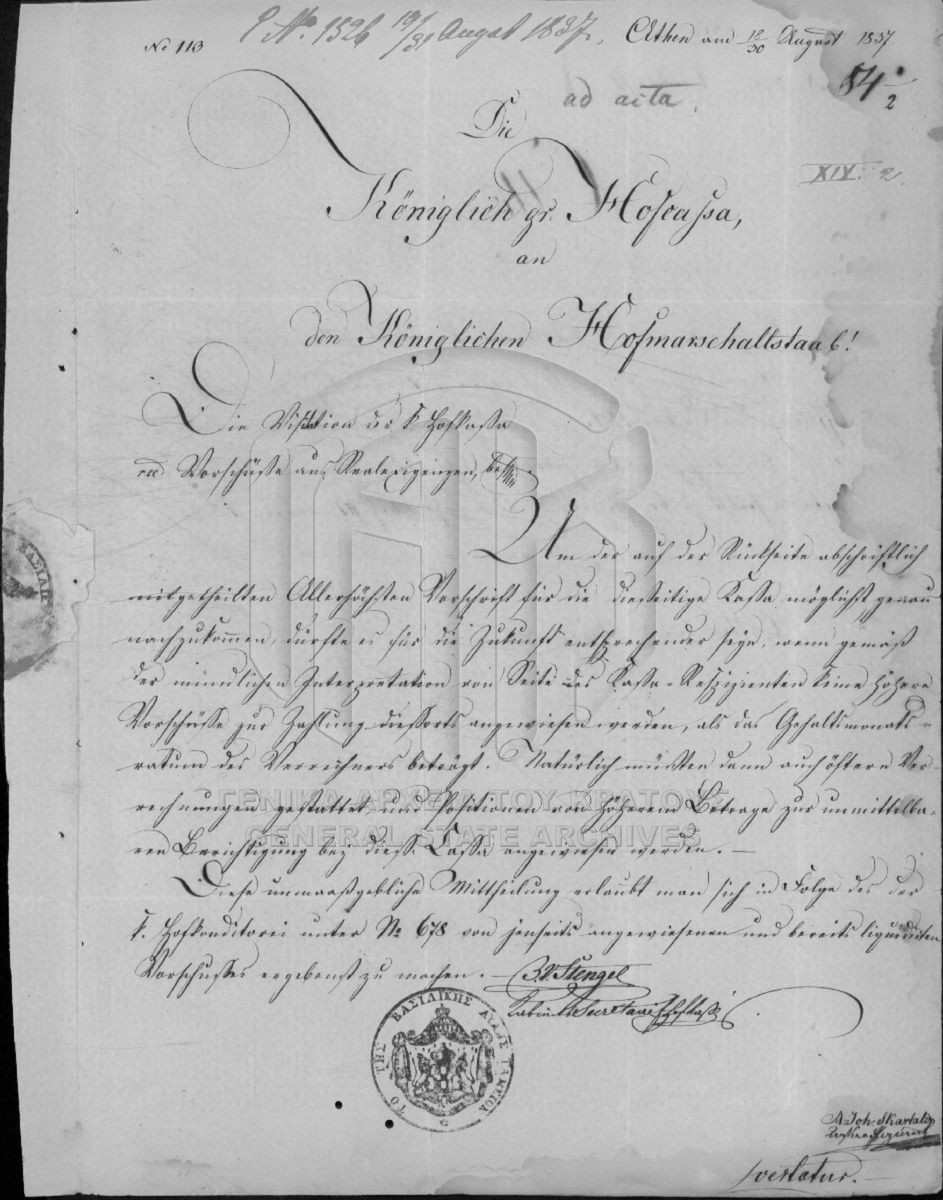 No 113
P. No. 1526 19/31 August 1837.
Athen am 18/30 August 1837
84 2
ad acta.
XIV. 2.
Die
Königlich gr. Hofcassa,
an
den Königlichen Hofmarschallstaab!
Die Visitation der k. Hofkassa
Vorschüsse aus Realexigenzen,
Um der auf der Rückseite abschriftlich
mitgetheilten Allerhöchsten Vorschrift für die diesseitige Kassa möglichst genau
nachzukommen, dürfte es für die Zukunft entsprechender seyn, wenn gemäß
der mündlichen Interpretation von Seite des Kassa-Respizienten keine höhern
Vorschüsse zur Zahlung diessorts angewiesen werden, als das Gehaltsmonats-
ratum des Verrechners beträgt. Natürlich müßten dann auch öftern Ver-
rechnungen gestattet, und Positionen von höherem Betrage zur unmittelba-
ren Berichtigung bey diess. Cassa angewiesen werden. —
Diese unmaaßgebliche Mittheilung erlaubt man sich in Folge des der
k. Hofkonditorei unter No 678 von jenseits angewiesenen und bereits liquidirten
Vorschusses ergebenst zu machen. —
B. v. Stengel
Kabinets Secretair
ΤΟ ΤΗΣ ΒΑΣΙΛΙΚΗΣ ΑΥΛΗΣ ΤΑΜΥΙΟΝ
ΒΑΣΙΛΙΚ
Joh. Skarlato
vertatur. —
ΓΕΝΙΚΑ ΑΡΧΕΙΑ ΤΟΥ ΚΡΑΤΟΥΣ
GENERAL STATE ARCHIVES